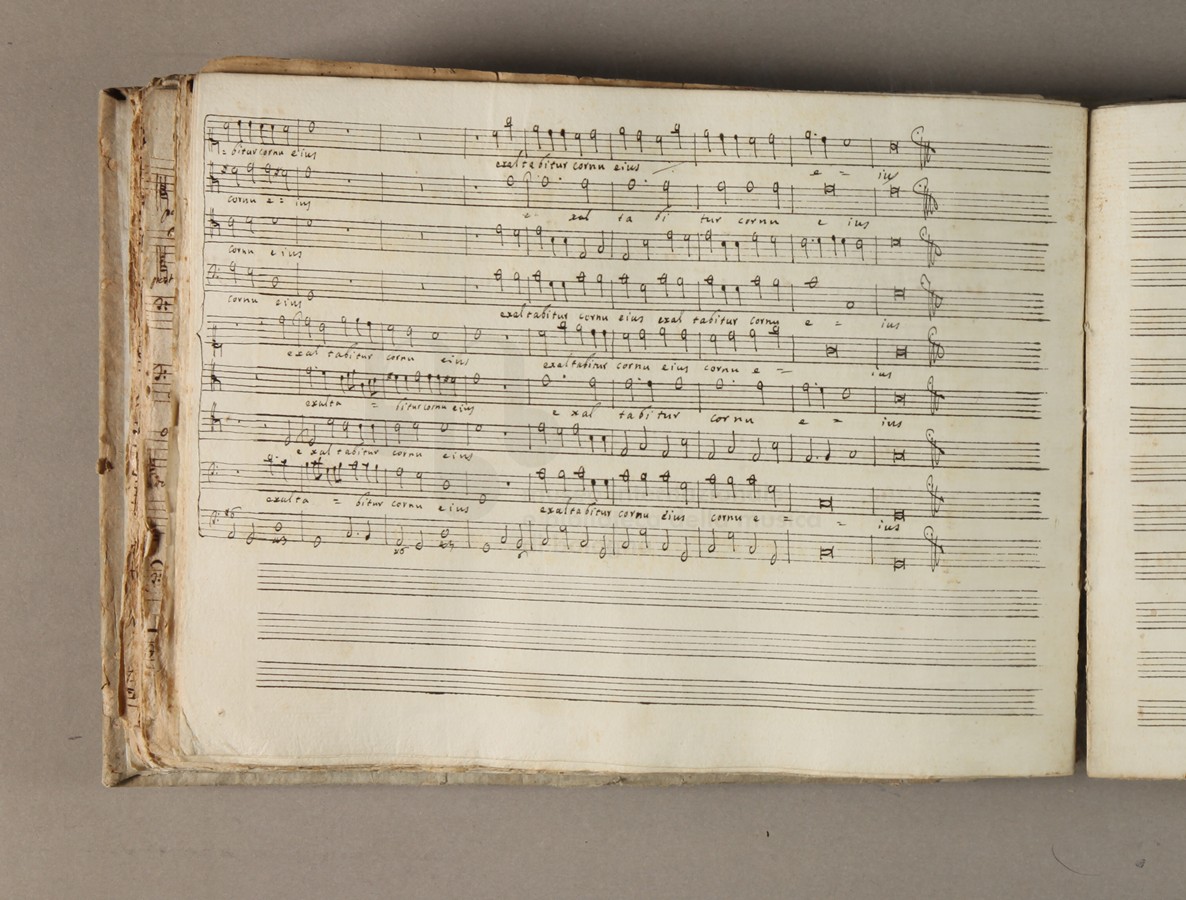 = bitur cornu eius exaltabitur cornu eius e = ius
cornu e = ius e = xal ta bi tur cornu e ius
cornu eius
cornu eius exaltabitur cornu eius exaltabitur cornu e = ius
exaltabitur cornu eius exaltabitur cornu eius cornu e = ius
exalta = bitur cornu eius e xal tabitur cornu e = ius
exaltabitur cornu eius
exalta = bitur cornu eius exaltabitur cornu eius cornu e = ius